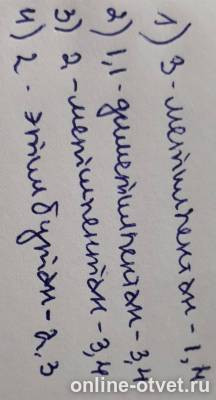 1) 3-метилпентан-1,4
2) 1,1-диметилпентан-3,4
3) 2-метилпентан-3,4
4) 2-этилбутан-2,3
online-otvet.ru